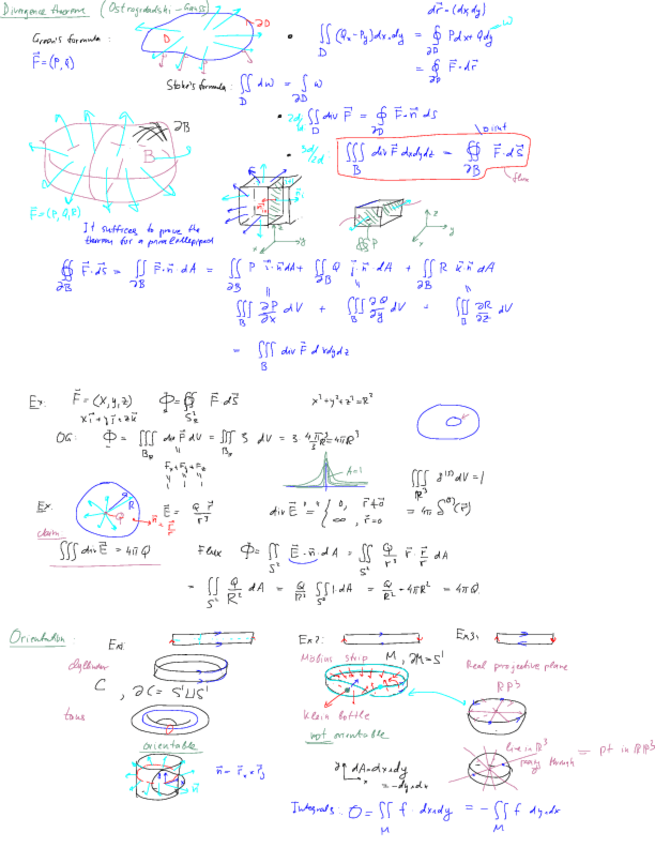 Divergence theorem (Ostrogradski-Gauss)
Green's formula:
F⃗ = (P, Q)
D
dr⃗ = (dx, dy)
• ∬_D (Qx - Py) dx dy = ∮_∂D P dx + Q dy
ω
= ∮_∂D F⃗ · dr⃗
Stoke's formula: ∬_D dω = ∫_∂D ω
• ∬_D div F⃗ = ∮_∂D F⃗ · n⃗ ds
∂B
B
• ∭_B div F⃗ dx dy dz = ∯_∂B F⃗ · dS⃗
flux
F⃗ = (P, Q, R)
It suffices to prove the
theorem for a parallelepiped
∯_∂B F⃗ · dS⃗ = ∬_∂B F⃗ · n⃗ dA = ∬_∂B P i⃗ · n⃗ dA + ∬_∂B Q j⃗ · n⃗ dA + ∬_∂B R k⃗ · n⃗ dA
∭_B ∂P/∂x dV + ∭_B ∂Q/∂y dV + ∭_B ∂R/∂z dV
= ∭_B div F⃗ dx dy dz
Ex: F⃗ = (x, y, z) Φ = ∯ F⃗ dS⃗ x² + y² + z² = R²
x i⃗ + y j⃗ + z k⃗
OG: Φ = ∭ div F⃗ dV = ∭ 3 dV = 3 · 4π/3 R³ = 4πR³
A=1
∭_ℝ³ δ⁽³⁾ dV = 1
Ex: R Q E⃗ = Q r⃗ / r³ div E⃗ "=" { 0, r⃗ ≠ 0
∞, r⃗ = 0
= 4π δ⁽³⁾(r⃗)
n⃗ = r⃗/r
claim
∭ div E⃗ = 4πQ Flux Φ = ∬_S² E⃗ · n⃗ dA = ∬_S² Q/r³ r⃗ · r⃗/r dA
= ∬_S² Q/R² dA = Q/R² ∬_S² 1 dA = Q/R² · 4πR² = 4πQ
Orientation:
Ex1 Ex2: Ex3:
Cylinder Möbius strip M, ∂M = S¹ Real projective plane
C, ∂C = S¹ ⊔ S¹ RP³
torus Klein bottle
orientable not orientable
line in ℝ³
passing through = pt in RP³
n⃗ = r⃗
dA = dx ∧ dy
= -dy ∧ dx
Integrals: 0 = ∬_M f · dx ∧ dy = -∬_M f dy ∧ dx